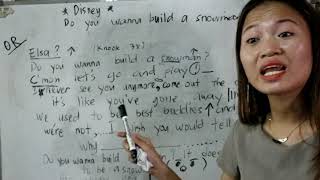 * Disney *
Do you wanna build a snowman
OR
Elsa? ↑ (Knock 3x)
Do you wanna build a snowman? ↑
C'mon let's go and play
I never see you anymore come out the
it's like you've gone away
we used to be best buddies ↑ and
were not, I wish you would tell
why
Do you wanna build it does
to be a snow